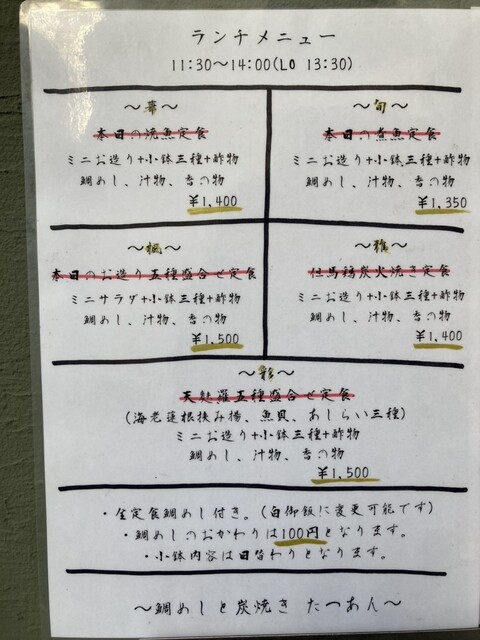 ランチメニュー
11:30〜14:00(LO 13:30)
〜寿〜
本日の焼魚定食
ミニお造り+小鉢三種+酢物
鯛めし、汁物、香の物
¥1,400
〜旬〜
本日の煮魚定食
ミニお造り+小鉢三種+酢物
鯛めし、汁物、香の物
¥1,350
〜楓〜
本日のお造り五種盛合せ定食
ミニサラダ+小鉢三種+酢物
鯛めし、汁物、香の物
¥1,500
〜雅〜
但馬鶏炭火焼き定食
ミニお造り+小鉢三種+酢物
鯛めし、汁物、香の物
¥1,400
〜彩〜
天麩羅五種盛合せ定食
(海老蓮根挟み揚、魚貝、あしらい三種)
ミニお造り+小鉢三種+酢物
鯛めし、汁物、香の物
¥1,500
・全定食鯛めし付き。(白御飯に変更可能です)
・鯛めしのおかわりは100円となります。
・小鉢内容は日替わりとなります。
〜鯛めしと炭焼き たつあん〜